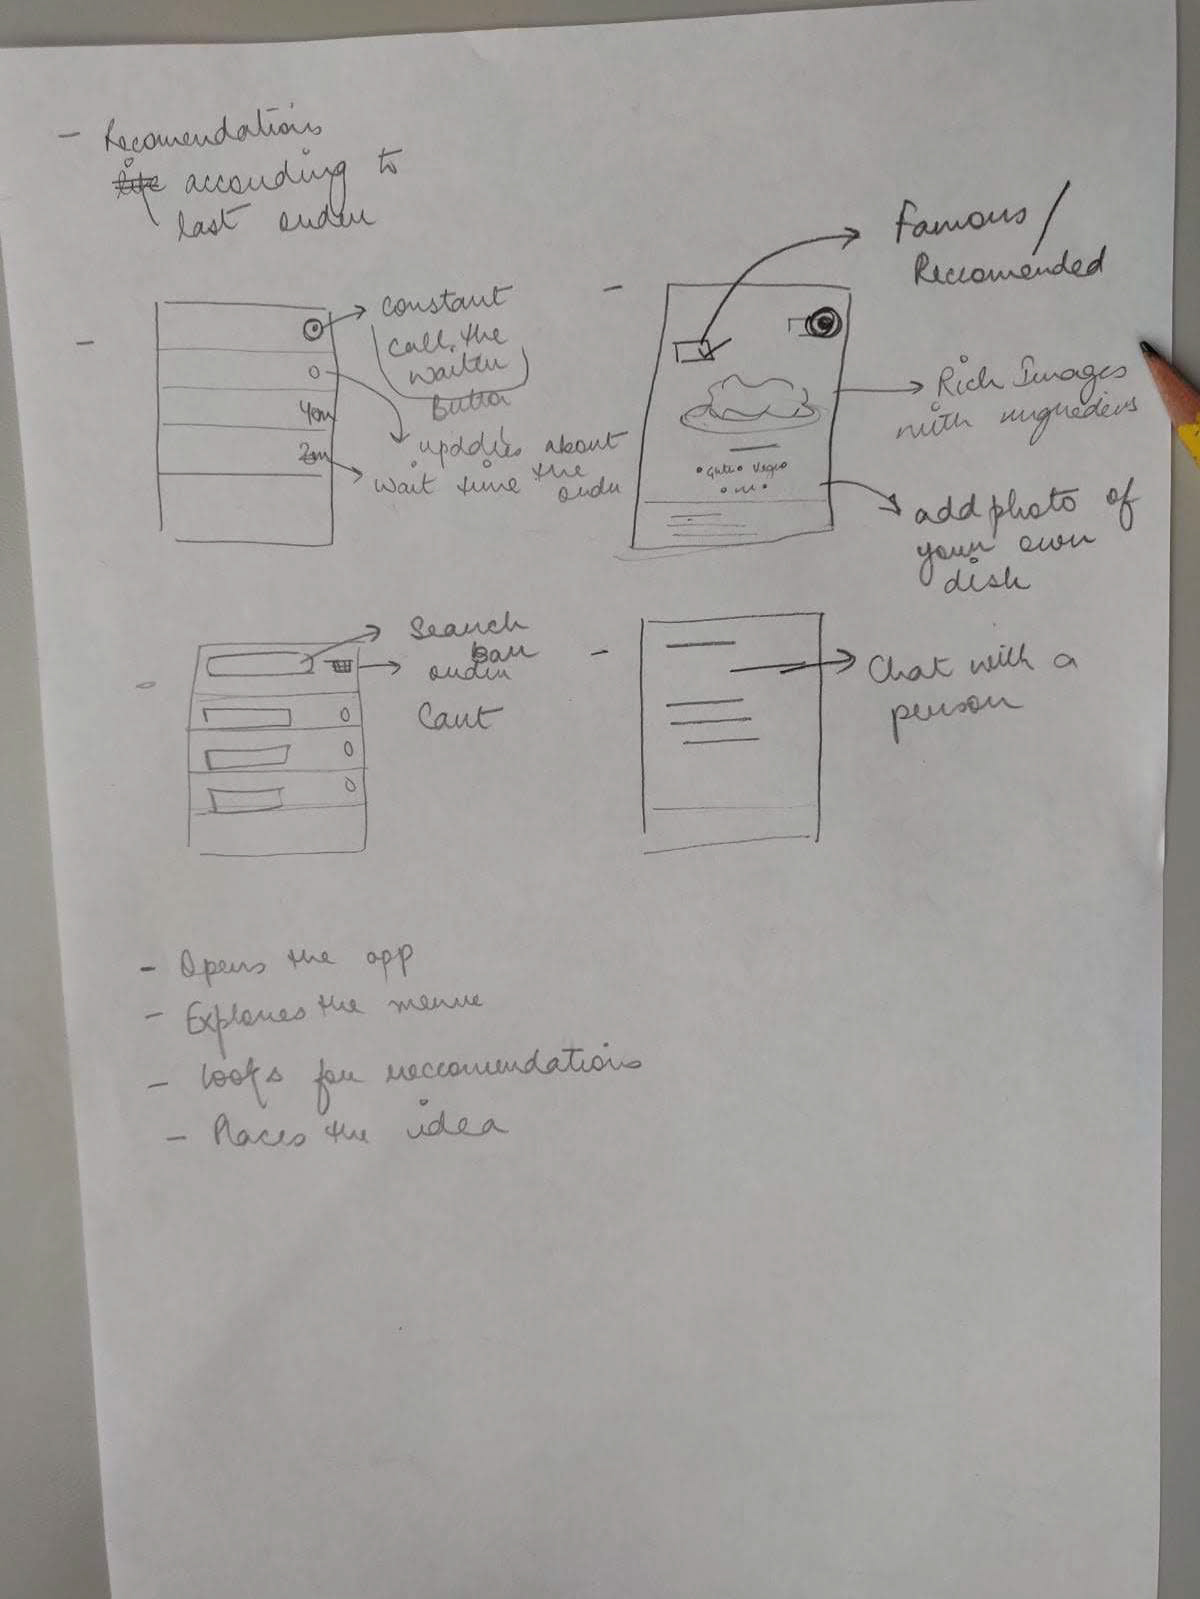 - Recomendations
according to
last order
- Famous /
Reccomended
- constant
call the
waiter
Button
O
40m
2m
updates about
wait time the
order
Rich Images
with ingredients
add photo of
your own
dish
- Search
bar
order
Cart
- Chat with a
person
- Opens the app
- Explores the menue
- looks for reccomendations
- Places the idea